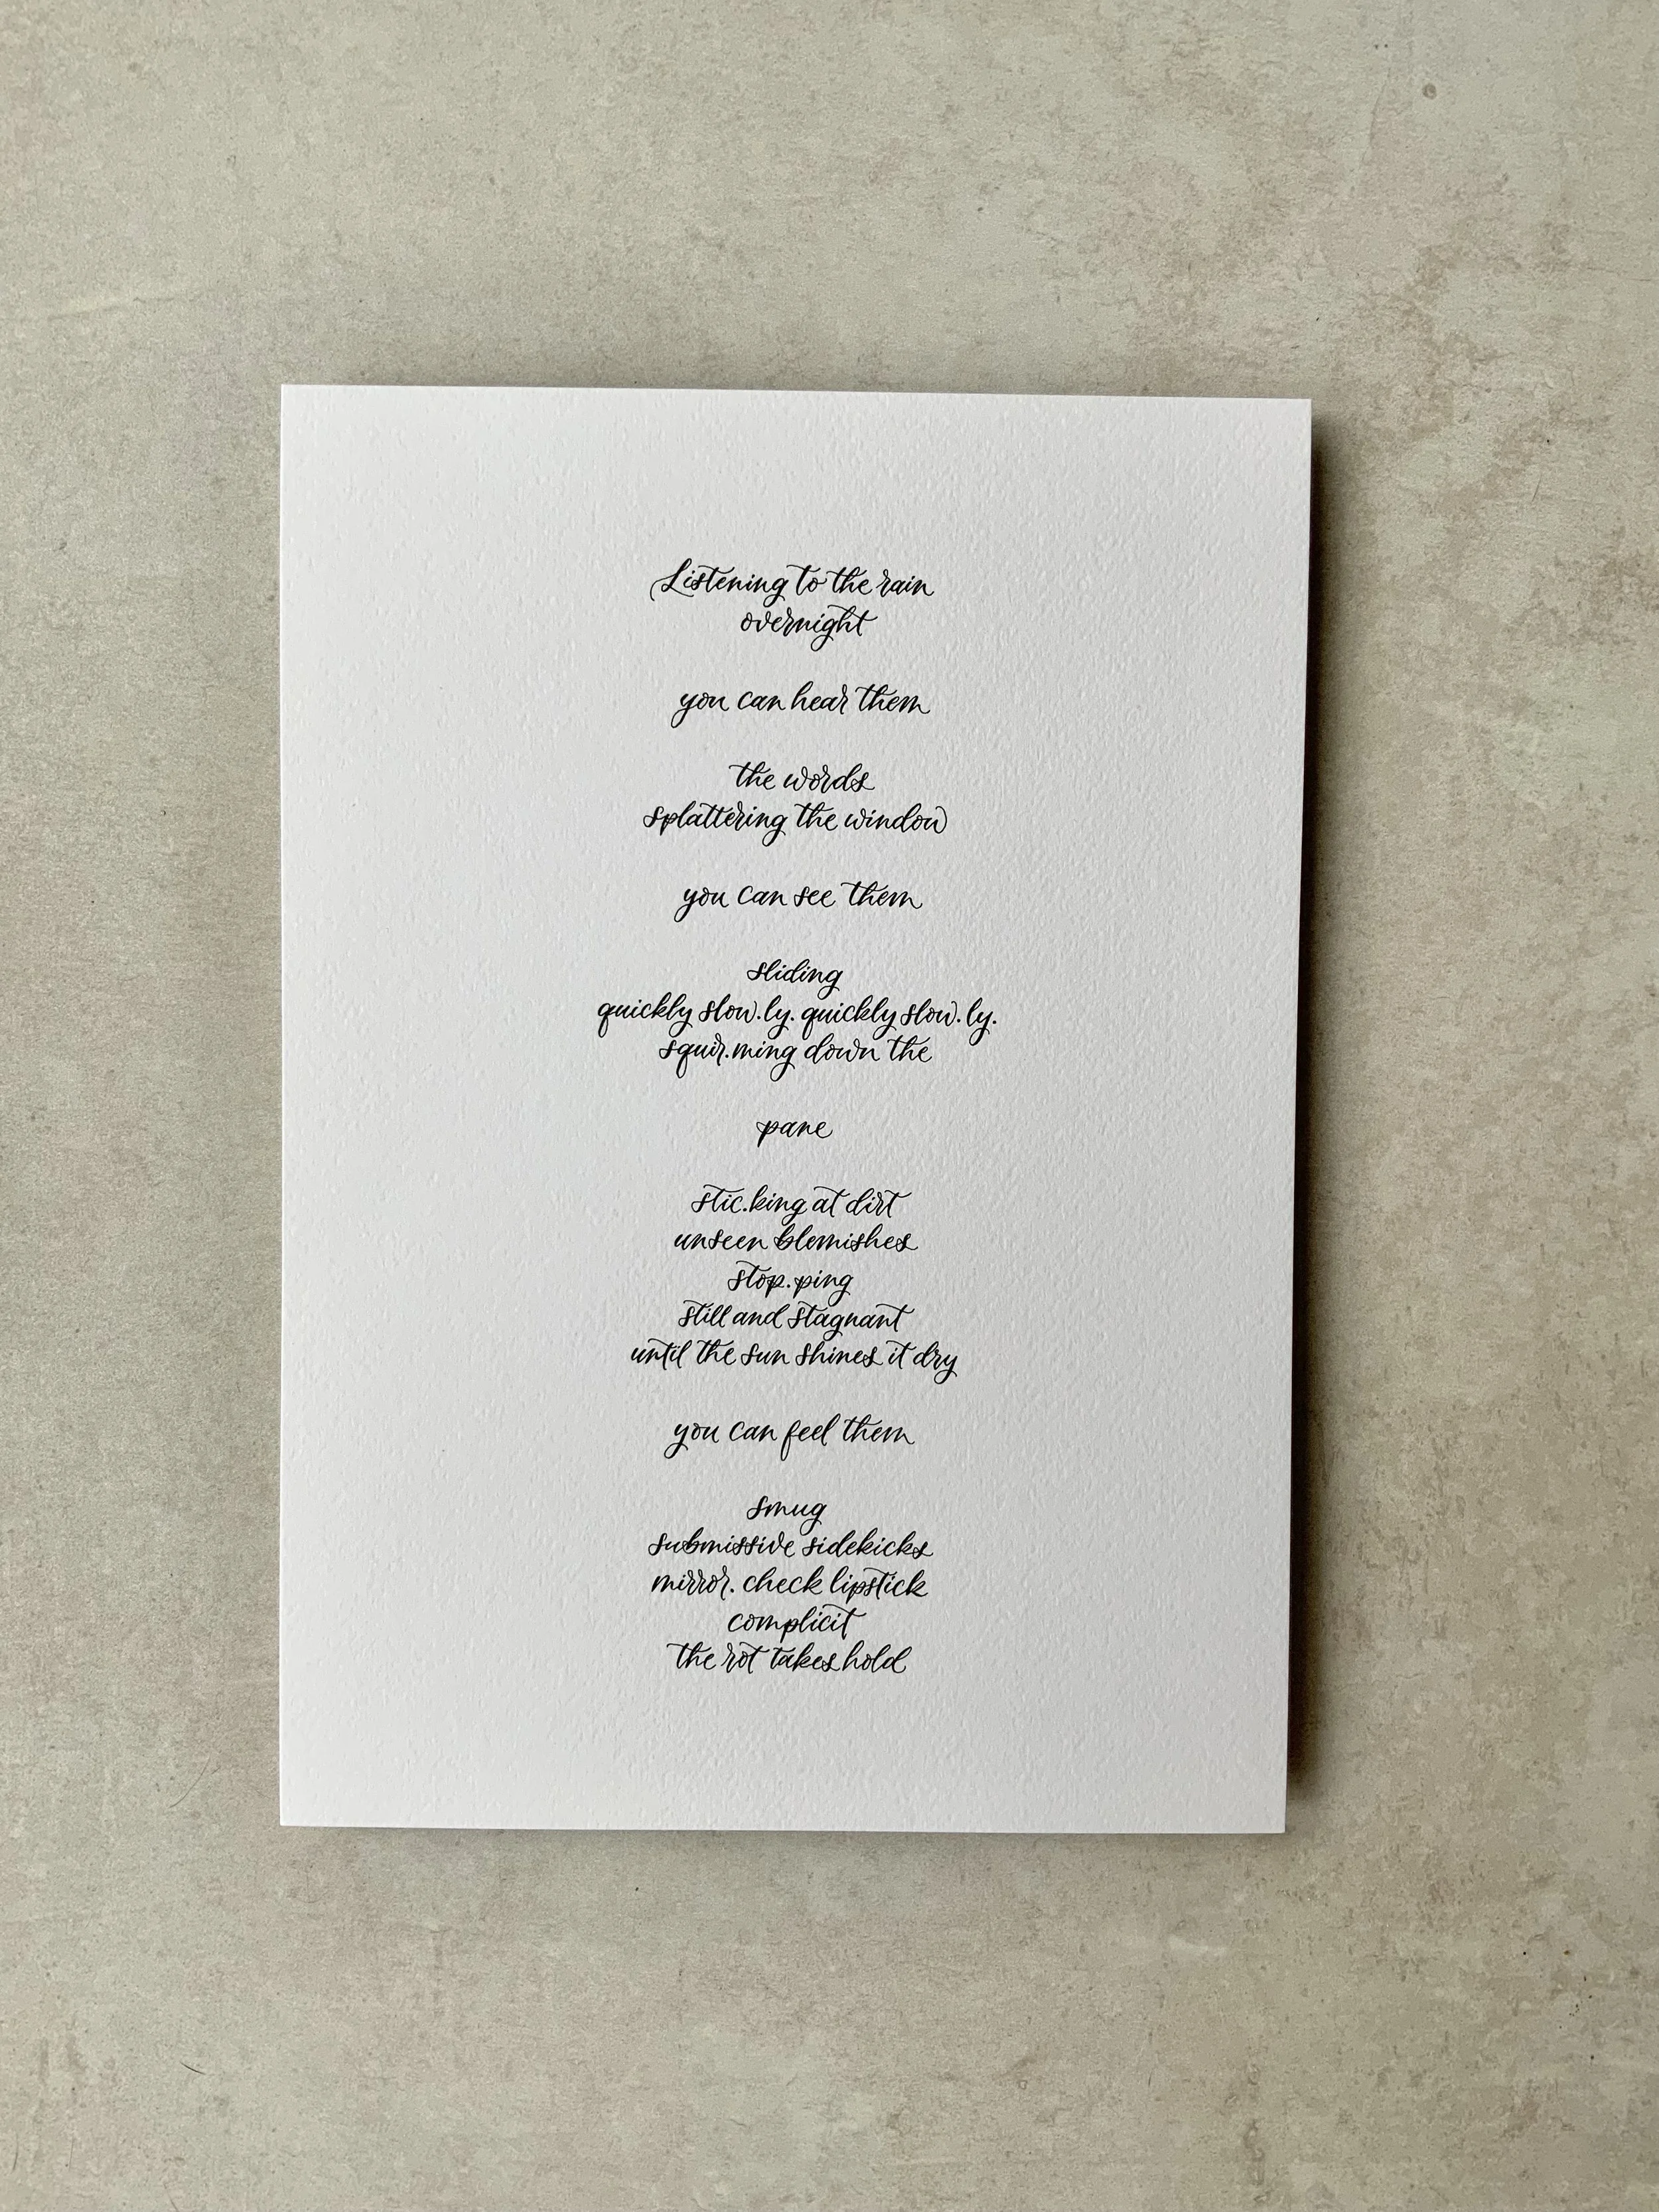 Listening to the rain
overnight
you can hear them
the words
splattering the window
you can see them
sliding
quickly slow.ly. quickly slow.ly.
squir.ming down the
pane
stic.king at dirt
unseen blemishes
stop.ping
still and stagnant
until the sun shines it dry
you can feel them
smug
submissive sidekicks
mirror. check lipstick
complicit
the rot takes hold